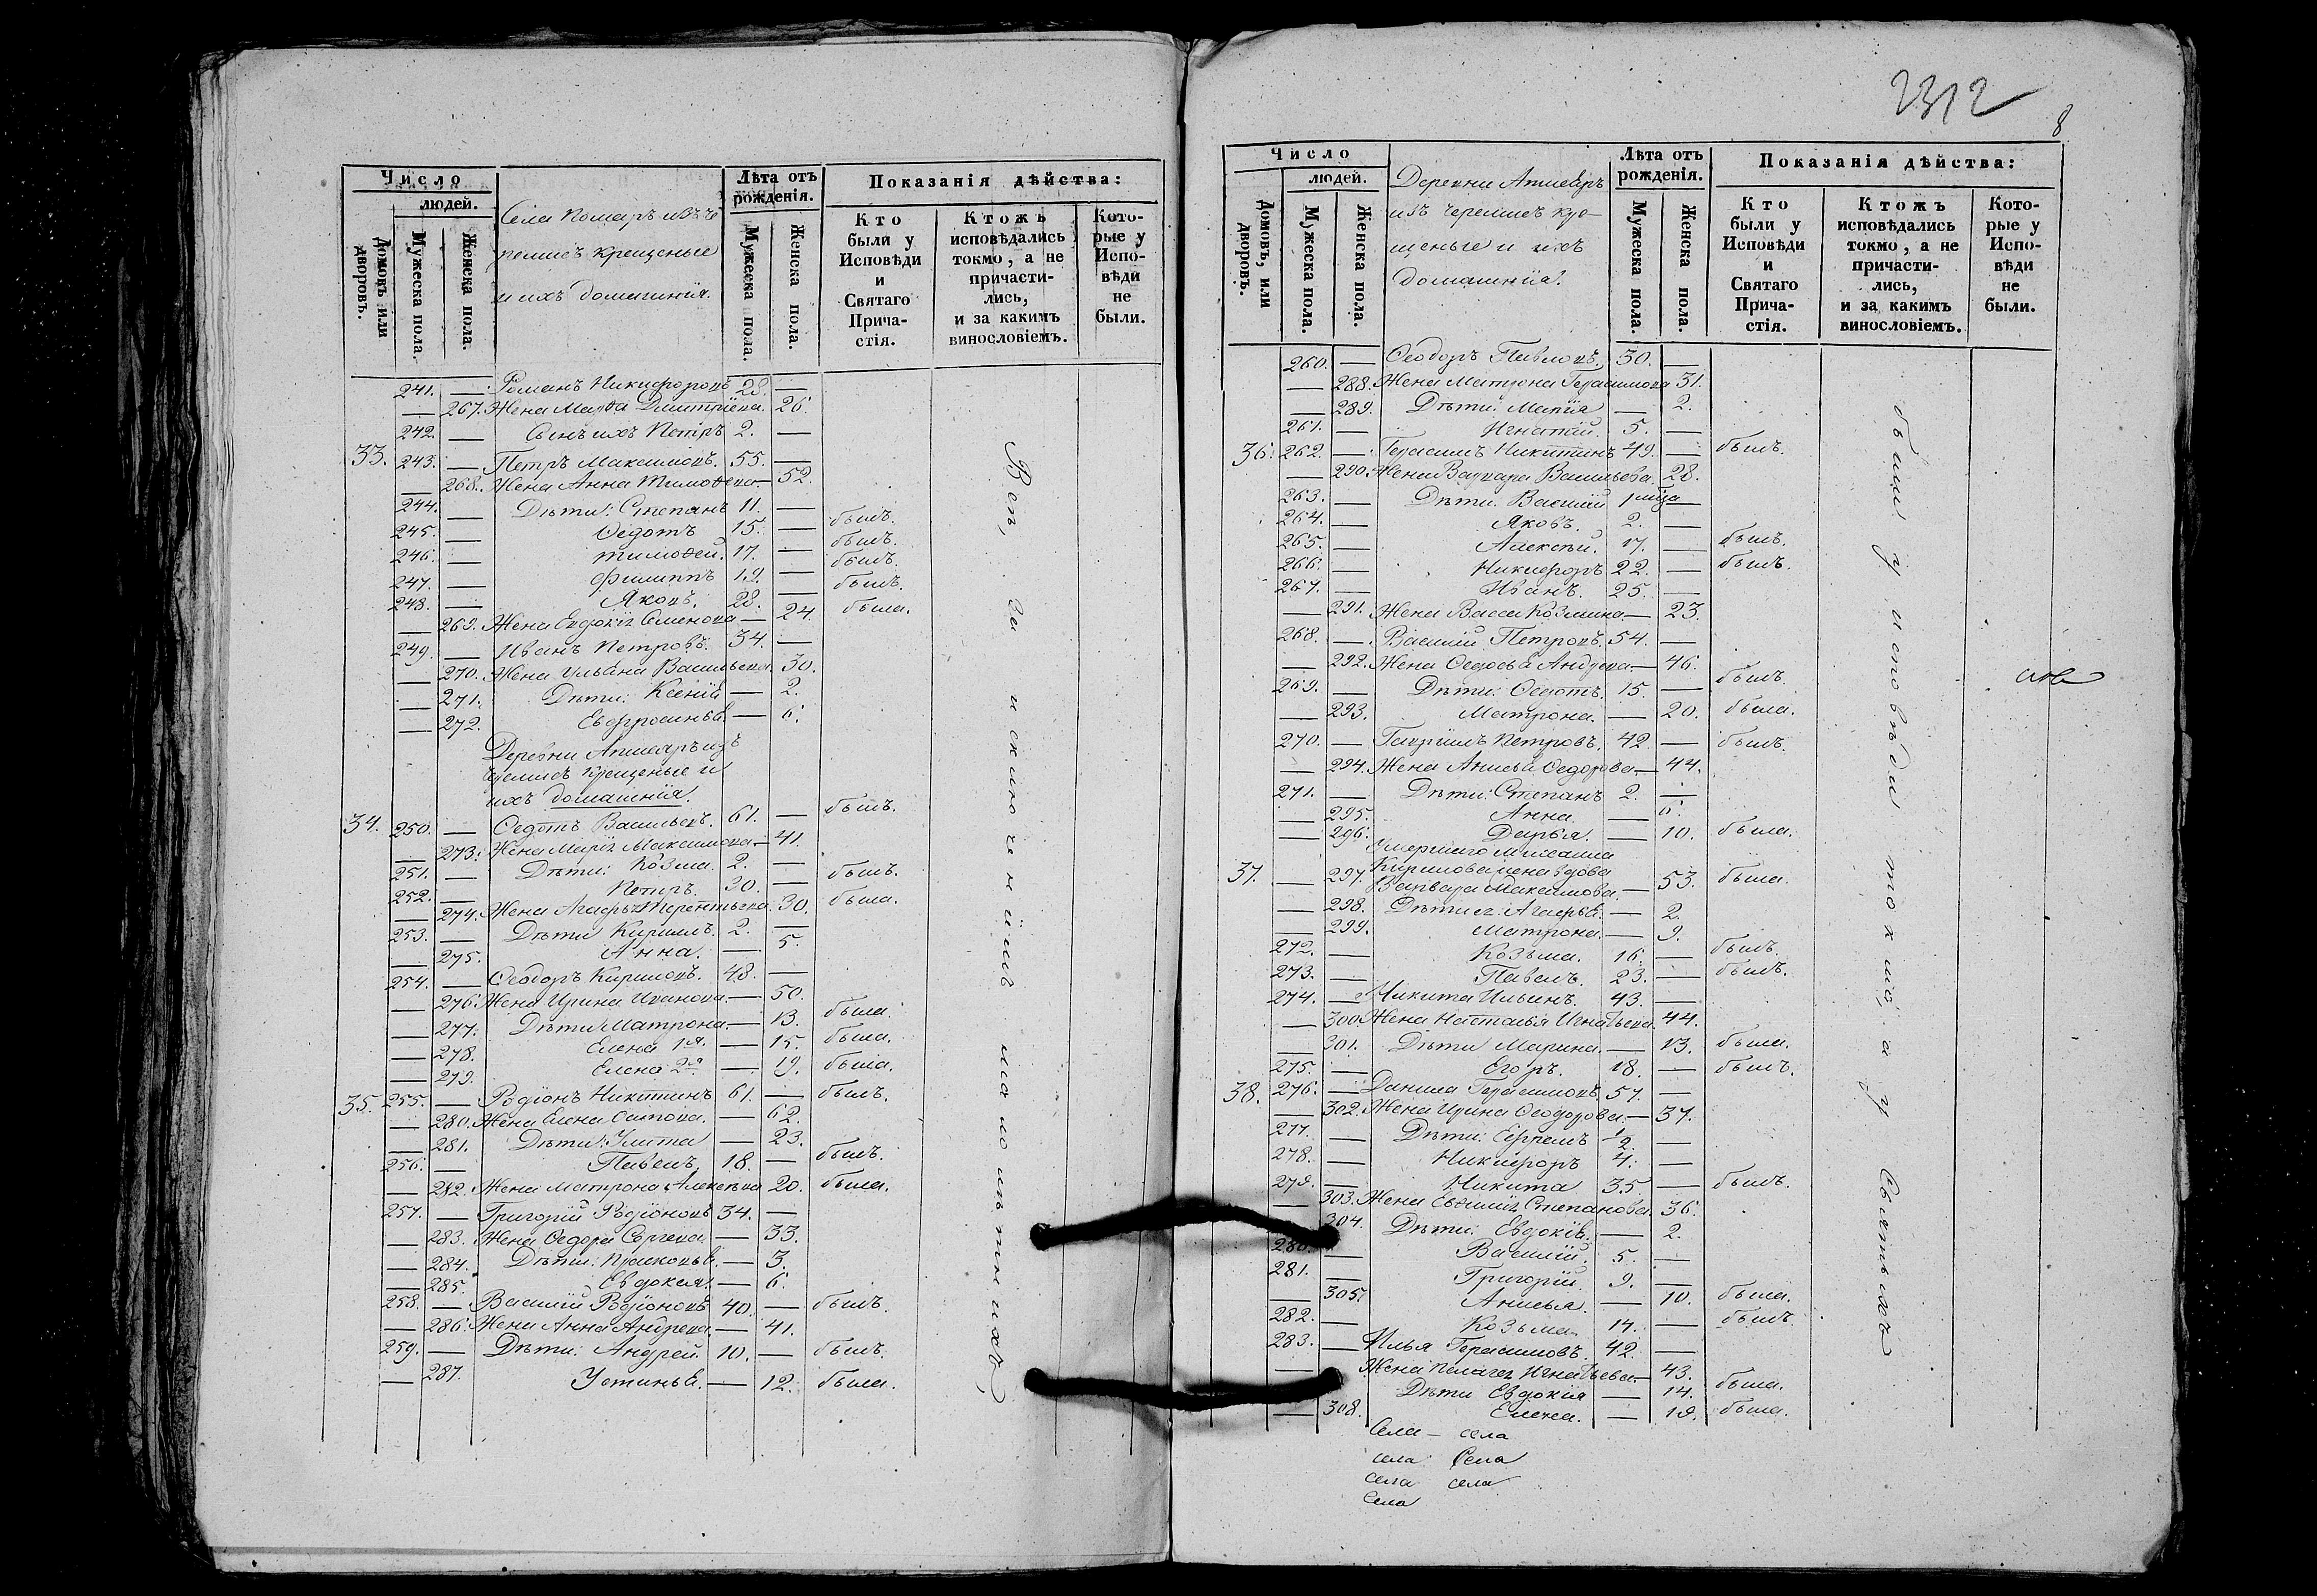 Число
людей.
Домовъ или дворовъ.
Мужеска пола.
Женска пола.
Села Помаръ изъ че
ремисъ крещеные
и ихъ домашнія.
Лѣта отъ рожденія.
Мужеска пола.
Женска пола.
Показанія дѣйства:
Кто были у Исповѣди и Святаго Прича-стія.
Ктожъ исповѣдались токмо, а не причасти-лись, и за какимъ винословіемъ.
Кото-рые у Испо-вѣди не были.
241. — Романъ Никифоровъ 28. —
— 267. Жена Марѳа Дмитріева. 26.
242. — Сынъ ихъ Петръ 2. —
33. 243. — Петръ Максимовъ. 55. —
— 268. Жена Анна Тимоѳева — 52.
244. — Дѣти: Степанъ 11. — былъ.
245. — Ѳедотъ 15. — былъ.
246. — Тимоѳей. 17. — былъ.
247. — Филиппъ 19. — былъ.
248. — Яковъ. 28. —
— 269. Жена Евдокія Семенова — 24. была.
249. — Иванъ Петровъ. 34. —
— 270. Жена Ульяна Васильева. 30.
— 271. Дѣти: Ксенія — 2.
— 272. Евфросинья. — 6.
Деревни Апшеяръ изъ
черемисъ крещеные и
ихъ домашнія.
34. 250. — Ѳедотъ Васильевъ. 61. — былъ.
— 273. Жена Марія Максимова — 41.
251. — Дѣти: Козма. 2. —
252. — Петръ. 30. — былъ.
— 274. Жена Агафья Терентьева. 30. была.
253. — Дѣти Кириллъ. 2. —
— 275. Анна. — 5.
254. — Ѳеодоръ Кириловъ. 48. —
— 276. Жена Ирина Иванова. — 50.
— 277. Дѣти Матрона — 13. была.
— 278. Елена 1я. — 15. была.
— 279. Елена 2я — 19. была.
35. 255. — Родіонъ Никитинъ 61. — былъ.
— 280. Жена Елена Осипова. — 62.
— 281. Дѣти: Улита — 23.
256. — Павелъ. 18. — былъ.
— 282. Жена Матрона Алексѣва 20. была.
257. — Григорій Родіоновъ 34. —
— 283. Жена Ѳедора Сергева. — 33.
— 284. Дѣти: Прасковья. — 3.
— 285. Евдокея. — 6.
258. — Василій Родіоновъ 40. — былъ.
— 286. Жена Анна Андрева. — 41.
259. — Дѣти: Андрей. 10. — былъ.
— 287. Устинья. — 12. была.
Всѣ, за исключеніимъ малолѣтнихъ,
2312
8
Число
людей.
Домовъ, или дворовъ.
Мужеска пола.
Женска пола.
Деревни Апшеяръ
изъ черемисъ кре-
щеные и ихъ
домашнія.
Лѣта отъ рожденія.
Мужеска пола.
Женска пола.
Показанія дѣйства:
Кто были у Исповѣди и Святаго Прича-стія.
Ктожъ исповѣдались токмо, а не причасти-лись, и за какимъ винословіемъ.
Кото-рые у Испо-вѣди не были.
260. — Ѳеодоръ Павловъ. 30. —
— 288. Жена Матрона Герасимова 31.
— 289. Дѣти: Марія — 2.
261. — Игнатій. 5. —
36. 262. — Герасимъ Никитинъ 49. — былъ.
— 290. Жена Варвара Васильева. 28.
263. — Дѣти. Василій —
264. — Яковъ. 2. —
265. — Алексѣй. 17. — былъ.
266. — Никифоръ 22. — былъ.
267. — Иванъ. 25. —
— 291. Жена Васса Козмина — 23.
268. — Василій Петровъ. 54. —
— 292. Жена Ѳедосья Андрева — 46.
269. — Дѣти: Ѳедотъ. 15. — былъ.
— 293. Матрона. — 20. была.
270. — Гаврилъ Петровъ. 42. — былъ.
— 294. Жена Анисья Ѳедорова — 44.
271. — Дѣти: Степанъ 2. —
— 295. Анна. — 6.
— 296. Дарья. — 10. была.
Умершаго Михаила
37. — 297. Кирилова жена вдова
Варвара Максимова. — 53. была.
— 298. Дѣти ея: Агафья. — 2.
— 299. Матрона. — 9.
272. — Козьма. 16. — былъ.
273. — Павелъ. 23. — былъ.
274. — Никита Ильинъ. 43. —
— 300. Жена Наталья Игнатьева. 44.
— 301. Дѣти Марина. — 13. была.
275. — Егоръ. 18. — былъ.
38. 276. — Данила Герасимовъ. 57. —
— 302. Жена Ирина Ѳеодорова — 37.
277. — Дѣти: Ефремъ 1/2. —
278. — Никифоръ 4. —
279. — Никита 35 — былъ.
— 303. Жена Евфимія Степанова. 36.
304. Дѣти: Евдокія. — 2.
280. — Василій. 5. —
281. — Григорій. 9. —
— 305. Анисья. — 10. была.
282. — Козьма. 14. — былъ.
283. — Илья Герасимовъ. 42. —
— Жена Пелагея Игнатьева — 43.
Дѣти Евдокія — 14. была.
— 308. Елена. — 19. была.
были у исповѣди токмо, а у Святыхъ
Села — села
села Села
села села
Села